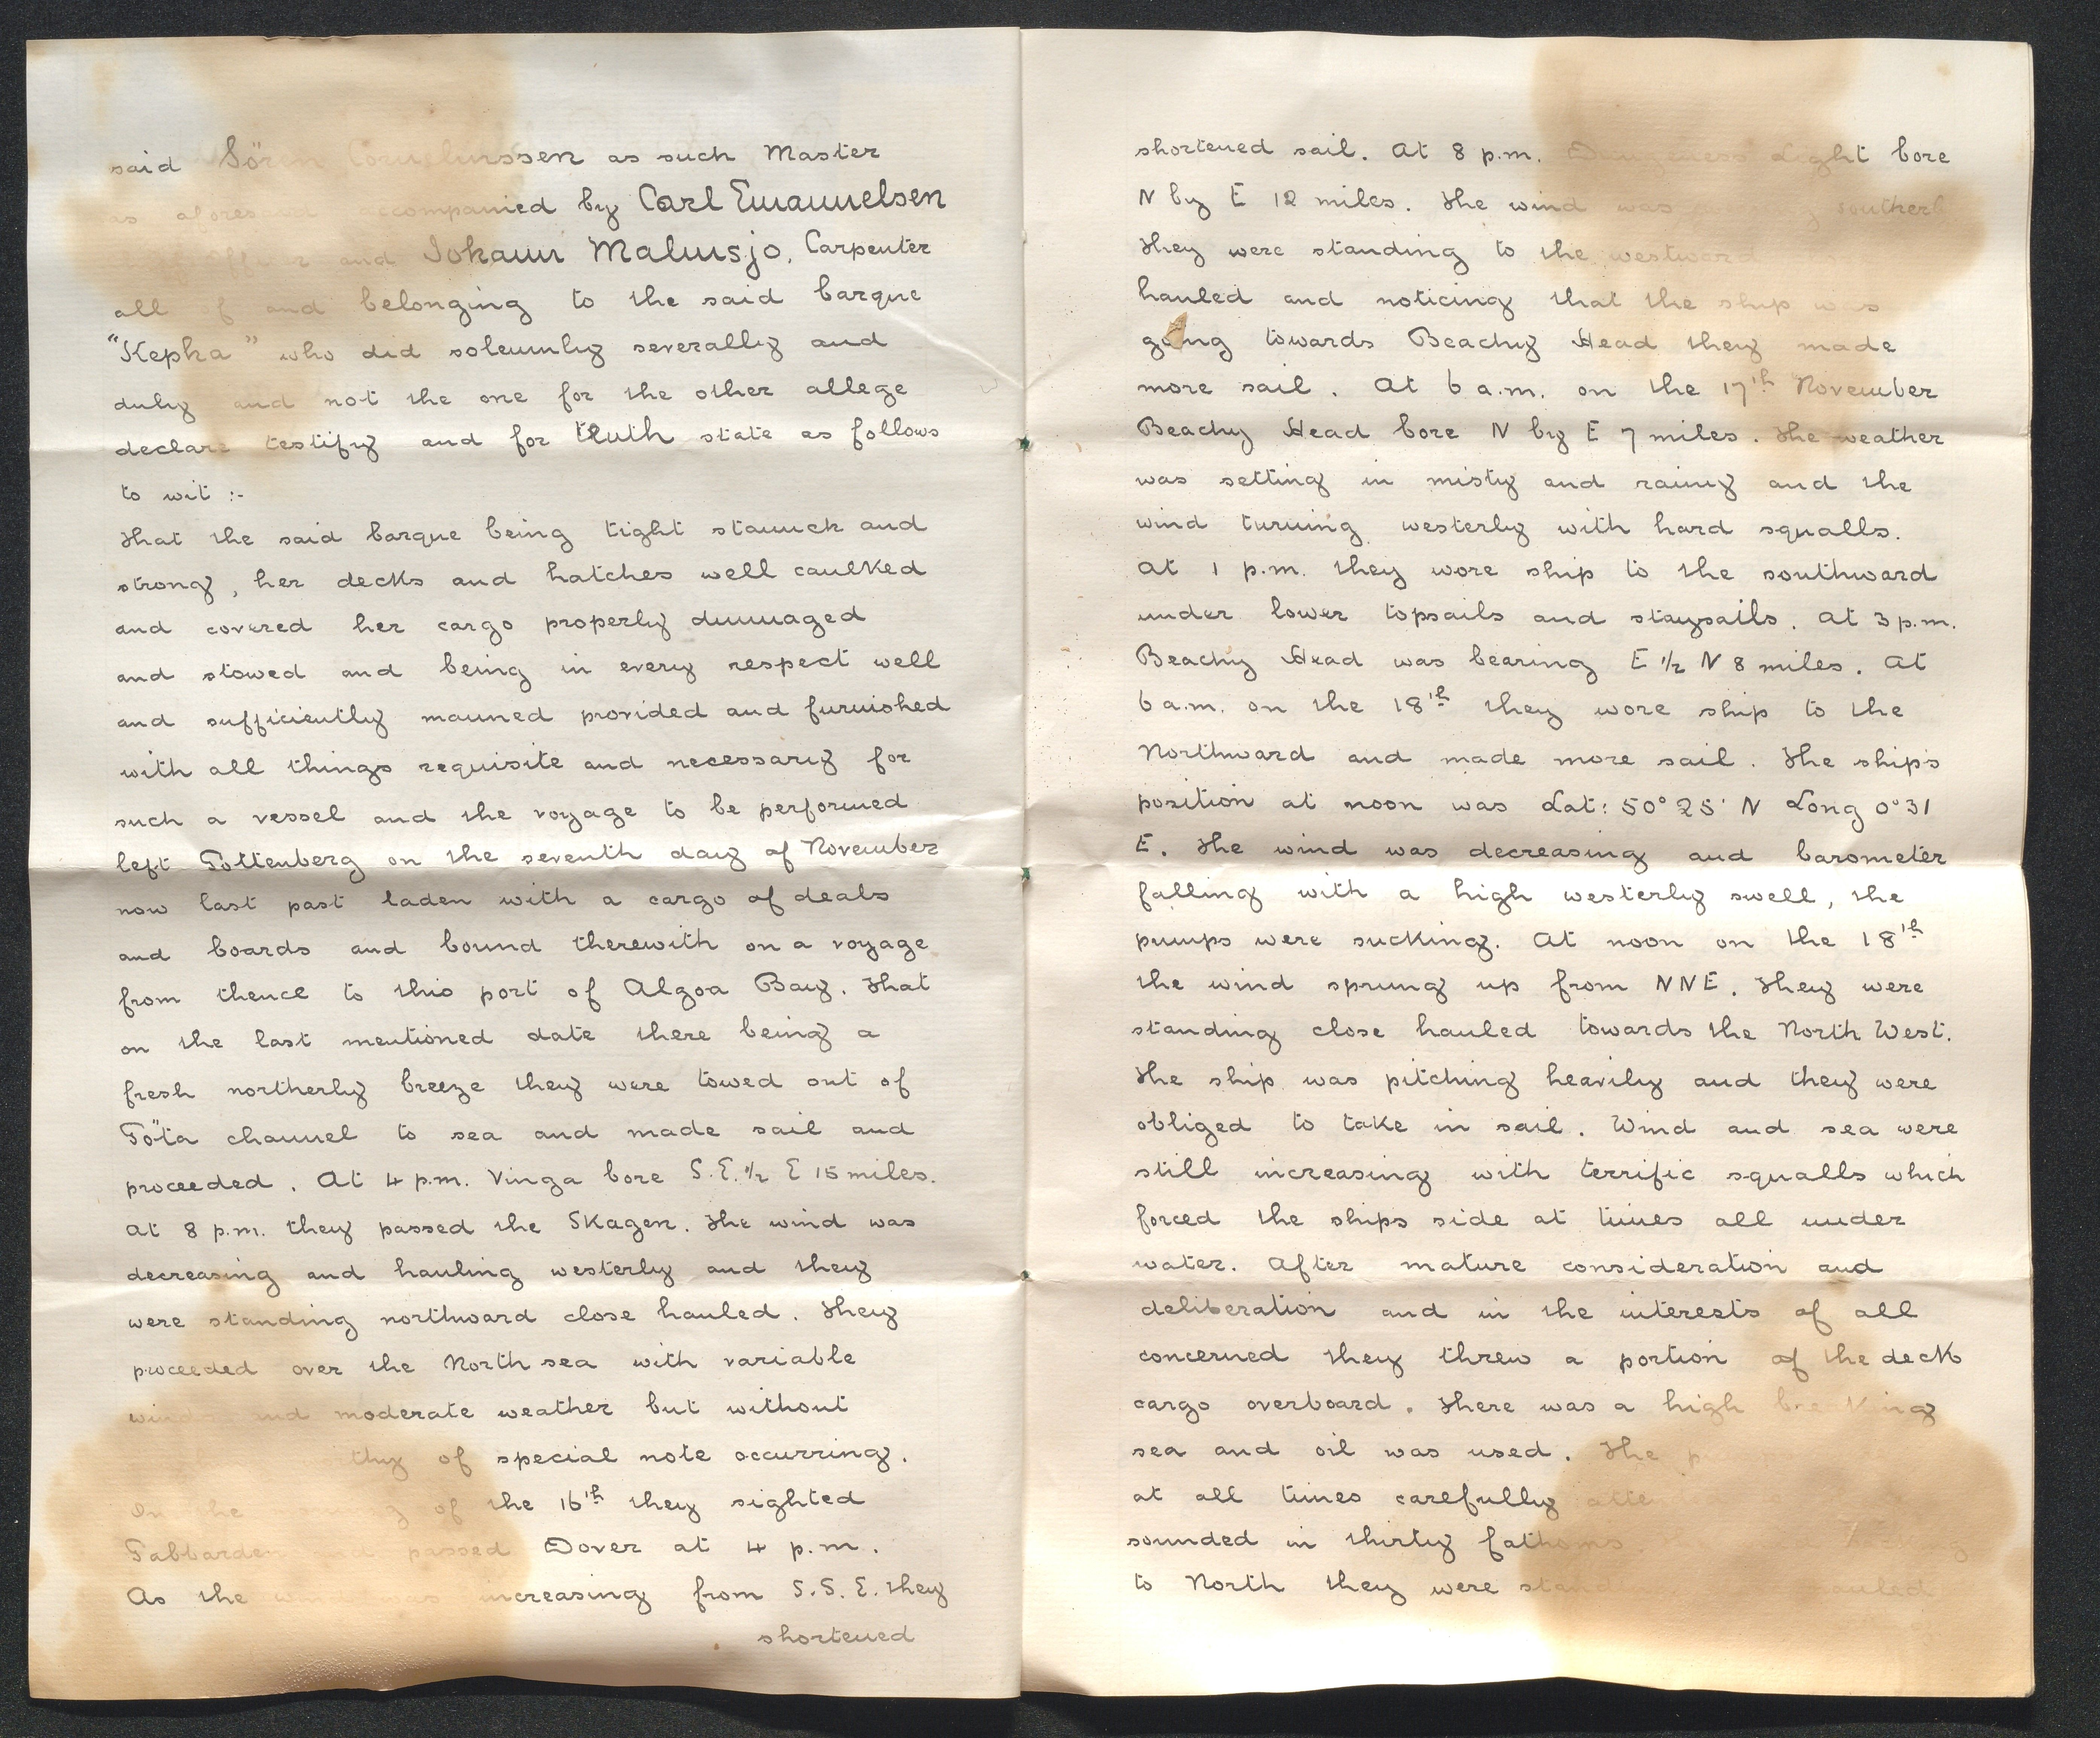 said Sören Corneliussen as such Master
as aforesaid accompanied by Carl Emanuelsen
Officer and Johann Malmsjo, Carpenter
all of and belonging to the said barque
"Kepha" who did solemnly severally and
duly and not the one for the other allege
declare testify and for truth state as follows
to wit :-
That the said barque being tight staunch and
strong, her decks and hatches well caulked
and covered her cargo properly dunnaged
and stowed and being in every respect well
and sufficiently manned provided and furnished
with all things requisite and necessary for
such a vessel and the voyage to be performed
left Gottenberg on the seventh day of November
now last past laden with a cargo of deals
and boards and bound therewith on a voyage
from thence to this port of Algoa Bay. That
on the last mentioned date there being a
fresh northerly breeze they were towed out of
Göta channel to sea and made sail and
proceeded. At 4 p.m. Vinga bore S.E. ½ E 15 miles.
At 8 p.m. they passed the Skagen. The wind was
decreasing and hauling westerly and they
were standing northward close hauled. They
proceeded over the North sea with variable
winds and moderate weather but without
of special note occurring.
On the of the 16th they sighted
Gabbarden and passed Dover at 4 p.m.
As the wind was increasing from S.S.E. they
shortened
shortened sail. At 8 p.m. Dungeness Light bore
N by E 12 miles. The wind was southerly
They were standing to the westward
hauled and noticing that the ship was
going towards Beachy Head they made
more sail. At 6 a.m. on the 17th November
Beachy Head bore N by E 7 miles. The weather
was setting in misty and rainy and the
wind turning westerly with hard squalls.
At 1 p.m. they wore ship to the southward
under lower topsails and staysails. At 3 p.m.
Beachy Head was bearing E ½ N 8 miles. At
6 a.m. on the 18th they wore ship to the
Northward and made more sail. The ship's
position at noon was Lat: 50° 25' N Long 0° 31
E. The wind was decreasing and barometer
falling with a high westerly swell, the
pumps were sucking. At noon on the 18th
the wind sprung up from NNE. They were
standing close hauled towards the North West.
The ship was pitching heavily and they were
obliged to take in sail. Wind and sea were
still increasing with terrific squalls which
forced the ships side at times all under
water. After mature consideration and
deliberation and in the interests of all
concerned they threw a portion of the deck
cargo overboard. There was a high breaking
sea and oil was used. The
at all times carefully
sounded in thirty fathoms.
to North they were